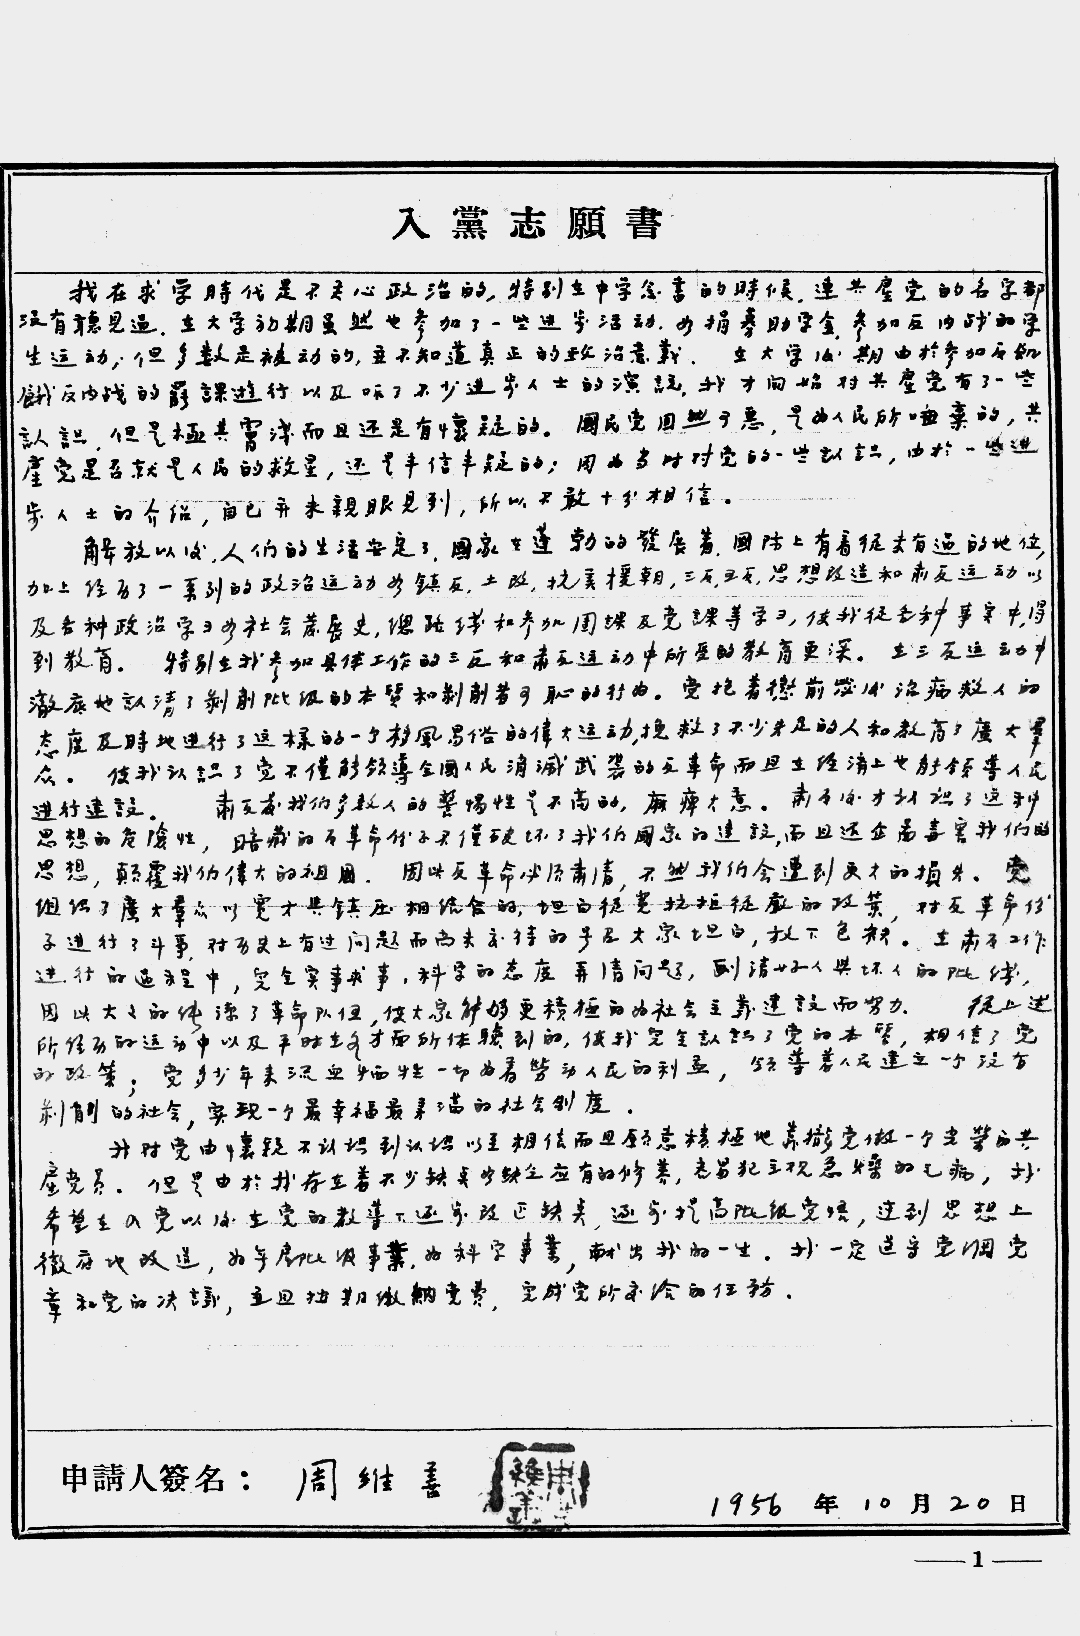 入黨志願書
我在求学時代是不关心政治的,特别在中学念書的時候,連共產党的名字都
没有聽見過.在大学初期虽然也参加了一些进步活动.如捐募助学金,参加反内战的学
生运动;但多数是被动的,並不知道真正的政治意義.在大学後期由於参加反飢
餓反内战的罷課遊行以及听了不少进步人士的演説,我才開始对共產党有了一些
認識,但是極其膚浅而且还是有懷疑的。國民党固然可惡,是为人民所唾棄的,共
產党是否就是人民的救星,还是半信半疑的;因为当时对党的一些認識,由於一些进
步人士的介绍,自己并未親眼見到,所以不敢十分相信。
解放以後,人們的生活安定了,國家在蓬勃的發展着,國际上有着從未有過的地位,
加上经历了一系列的政治运动如鎮反,土改,抗美援朝,三反五反,思想改造和肃反运动以
及各种政治学习如社会发展史,總路线和参加團課及党課等学习,使我從各种事实中,得
到教育。特别在我参加具体工作的三反和肃反运动中所受的教育更深。在三反运动中
澈底地認清了剥削阶级的本質和剥削者可恥的行为。党抱着懲前毖後治病救人的
态度及時地进行了这樣的一个移風易俗的偉大运动,挽救了不少失足的人和教育了廣大羣
众。使我認識了党不僅能領導全國人民消滅武装的反革命而且在经济上也能領導人民
进行建設。肃反前我们多数人的警惕性是不高的,麻痺大意。肃反後才認識了这种
思想的危險性,暗藏的反革命份子不僅破坏了我们國家的建設,而且还企圖毒害我们的
思想,顛覆我们偉大的祖國.因此反革命必須肃清,不然我们会遭到更大的損失。党
組织了廣大羣众以寬大與鎮压相结合的,坦白從寬抗拒從嚴的政策,对反革命份
子进行了斗争,对历史上有过问题而尚未交待的号召大家坦白,放下包袱。在肃反工作
进行的過程中,完全实事求事,科学的态度弄清问题,划清好人與坏人的阶线,
因此大大的纯潔了革命队伍,使大家能够更積極的为社会主義建設而努力.從上述
所经历的运动中以及平时在各方面所体驗到的,使我完全認識了党的本質,相信了党
的政策;党多少年来流血牺牲一切为着勞动人民的利益,領導着人民建立一个没有
剥削的社会,实現一个最幸福最美滿的社会制度.
我对党由懷疑不認識到認識以至相信而且愿意積極地靠攏党做一个光榮的共
產党員.但是由於我存在着不少缺点如缺乏应有的修養,容易犯主观急燥的毛病,我
希望在入党以後在党的教導下逐步改正缺点,逐步提高阶级党悟,达到思想上
徹底地改造,为無產阶级事業,为科学事業,献出我的一生.我一定遵守党綱党
章和党的决議,並且按期繳納党費,完成党所交给的任務.
申請人簽名:周維善
1956年10月20日
1